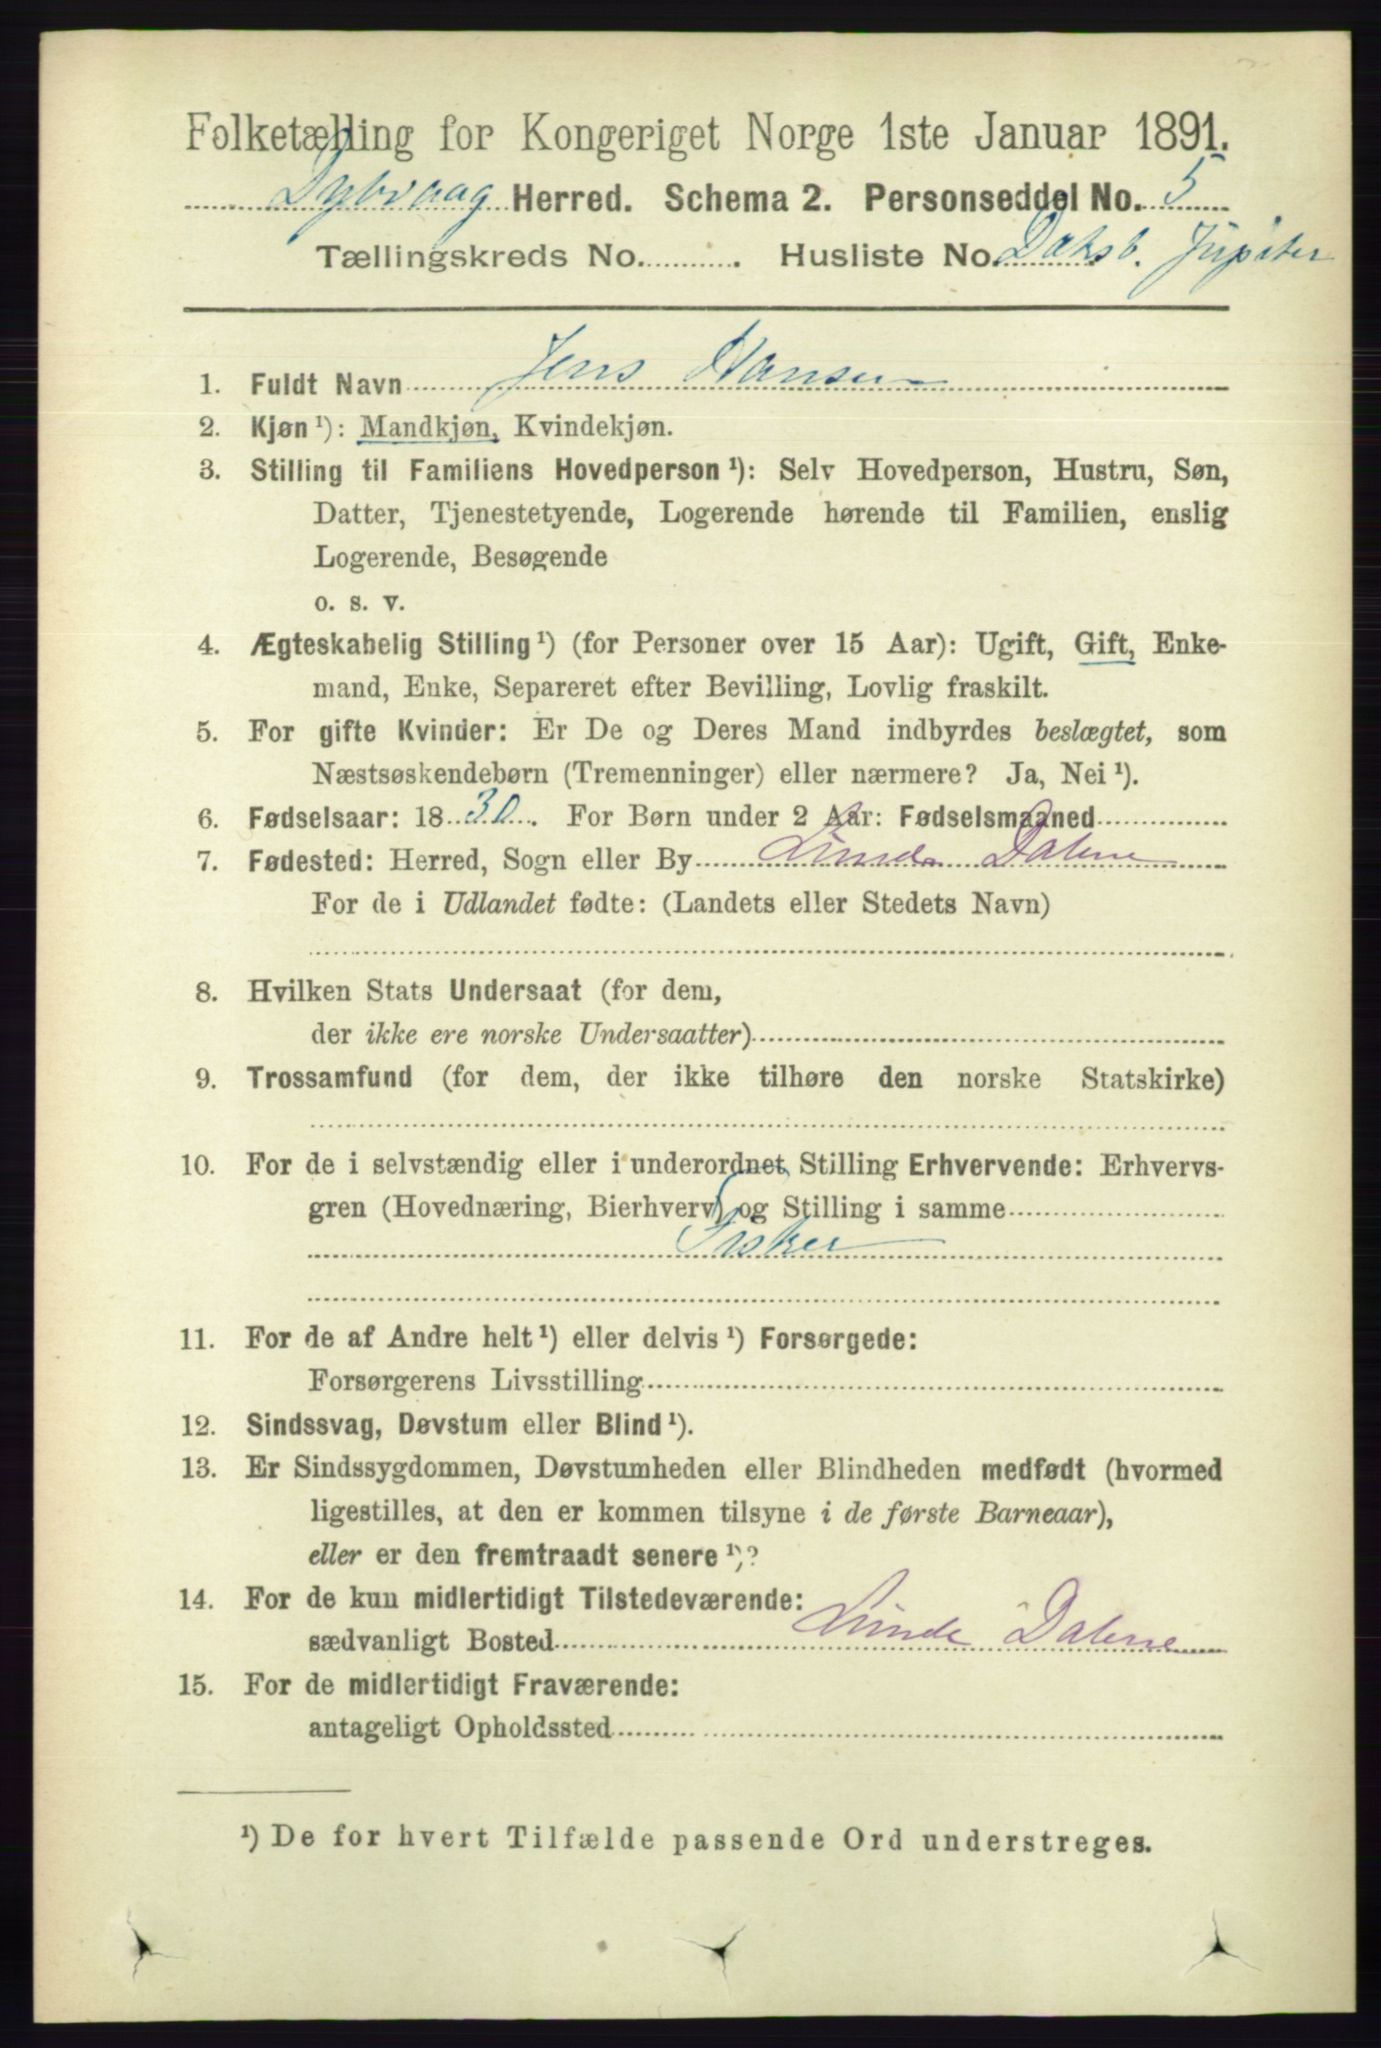 Folketælling for Kongeriget Norge 1ste Januar 1891.
Dybvaag Herred. Schema 2. Personseddel No. 5
Tællingskreds No. Husliste No. Daksb. Jupiter
1. Fuldt Navn Jens Hansen
2. Kjøn ¹): Mandkjøn, Kvindekjøn.
3. Stilling til Familiens Hovedperson ¹): Selv Hovedperson, Hustru, Søn,
Datter, Tjenestetyende, Logerende hørende til Familien, enslig
Logerende, Besøgende
o. s. v.
4. Ægteskabelig Stilling ¹) (for Personer over 15 Aar): Ugift, Gift, Enke-
mand, Enke, Separeret efter Bevilling, Lovlig fraskilt.
5. For gifte Kvinder: Er De og Deres Mand indbyrdes beslægtet, som
Næstsøskendebørn (Tremenninger) eller nærmere? Ja, Nei ¹).
6. Fødselsaar: 1830. For Børn under 2 Aar: Fødselsmaaned
7. Fødested: Herred, Sogn eller By Linde Dalene
For de i Udlandet fødte: (Landets eller Stedets Navn)
8. Hvilken Stats Undersaat (for dem,
der ikke ere norske Undersaatter)
9. Trossamfund (for dem, der ikke tilhøre den norske Statskirke)
10. For de i selvstændig eller i underordnet Stilling Erhvervende: Erhvervs-
gren (Hovednæring, Bierhverv) og Stilling i samme
Fisker
11. For de af Andre helt ¹) eller delvis ¹) Forsørgede:
Forsørgerens Livsstilling
12. Sindssvag, Døvstum eller Blind ¹).
13. Er Sindssygdommen, Døvstumheden eller Blindheden medfødt (hvormed
ligestilles, at den er kommen tilsyne i de første Barneaar),
eller er den fremtraadt senere ¹)?
14. For de kun midlertidigt Tilstedeværende:
sædvanligt Bosted Linde Dalene
15. For de midlertidigt Fraværende:
antageligt Opholdssted
¹) De for hvert Tilfælde passende Ord understreges.